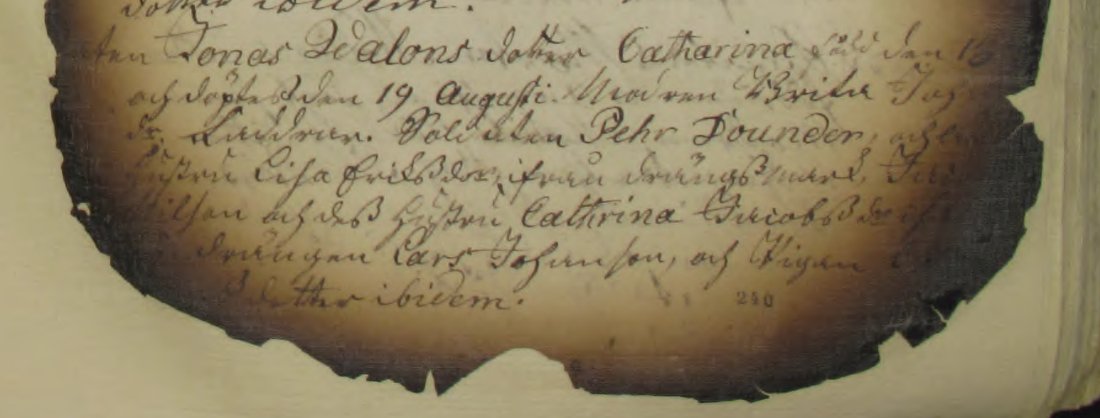 dotter ibidem.
Jonas Walons dotter Catharina född den 18
och döptes den 19 Augusti. Modren Brita Joh
dr. Faddrar. Soldaten Pehr Dounder, och
hustru Lisa Eriksdor, ifrån drängsmark,
Nilsson och deß hustru Cathrina Jacobsdr
drängen Lars Johansson, och Pigan
dotter ibidem.
240